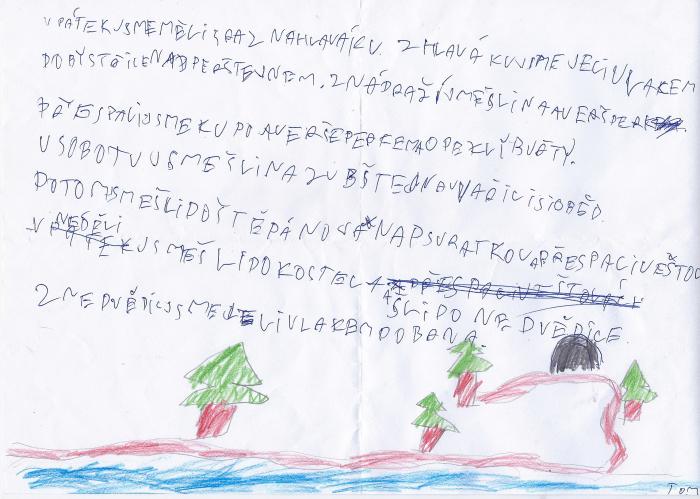 V PÁTEK JSME MĚLI SRAZ NA HLAVÁKU. Z HLAVÁKU JSME JELI VLAKEM
DO BYSTŘICE NAD PERŠTEJNEM. Z NÁDRAŽÍ JSME ŠLI NA AVERŠPERK
PŘESPALI JSME KUPO AVERŠEPERKEM A OPEKLI BUŘTY.
V SOBOTU JSME ŠLI NA ZUBŠTEJN A UVAŘILI SI OBĚD.
POTOM JSME ŠLI DO ŠTĚPÁNOVA NAD SVRATKOU A PŘESPALI VE ŠTO
V NEDĚLI JSME ŠLI DO KOSTELA
A ŠLI DO NEDVĚDICE.
Z NEDVĚDICE JSME JELI VLAKEM DO BRNA.
TOM